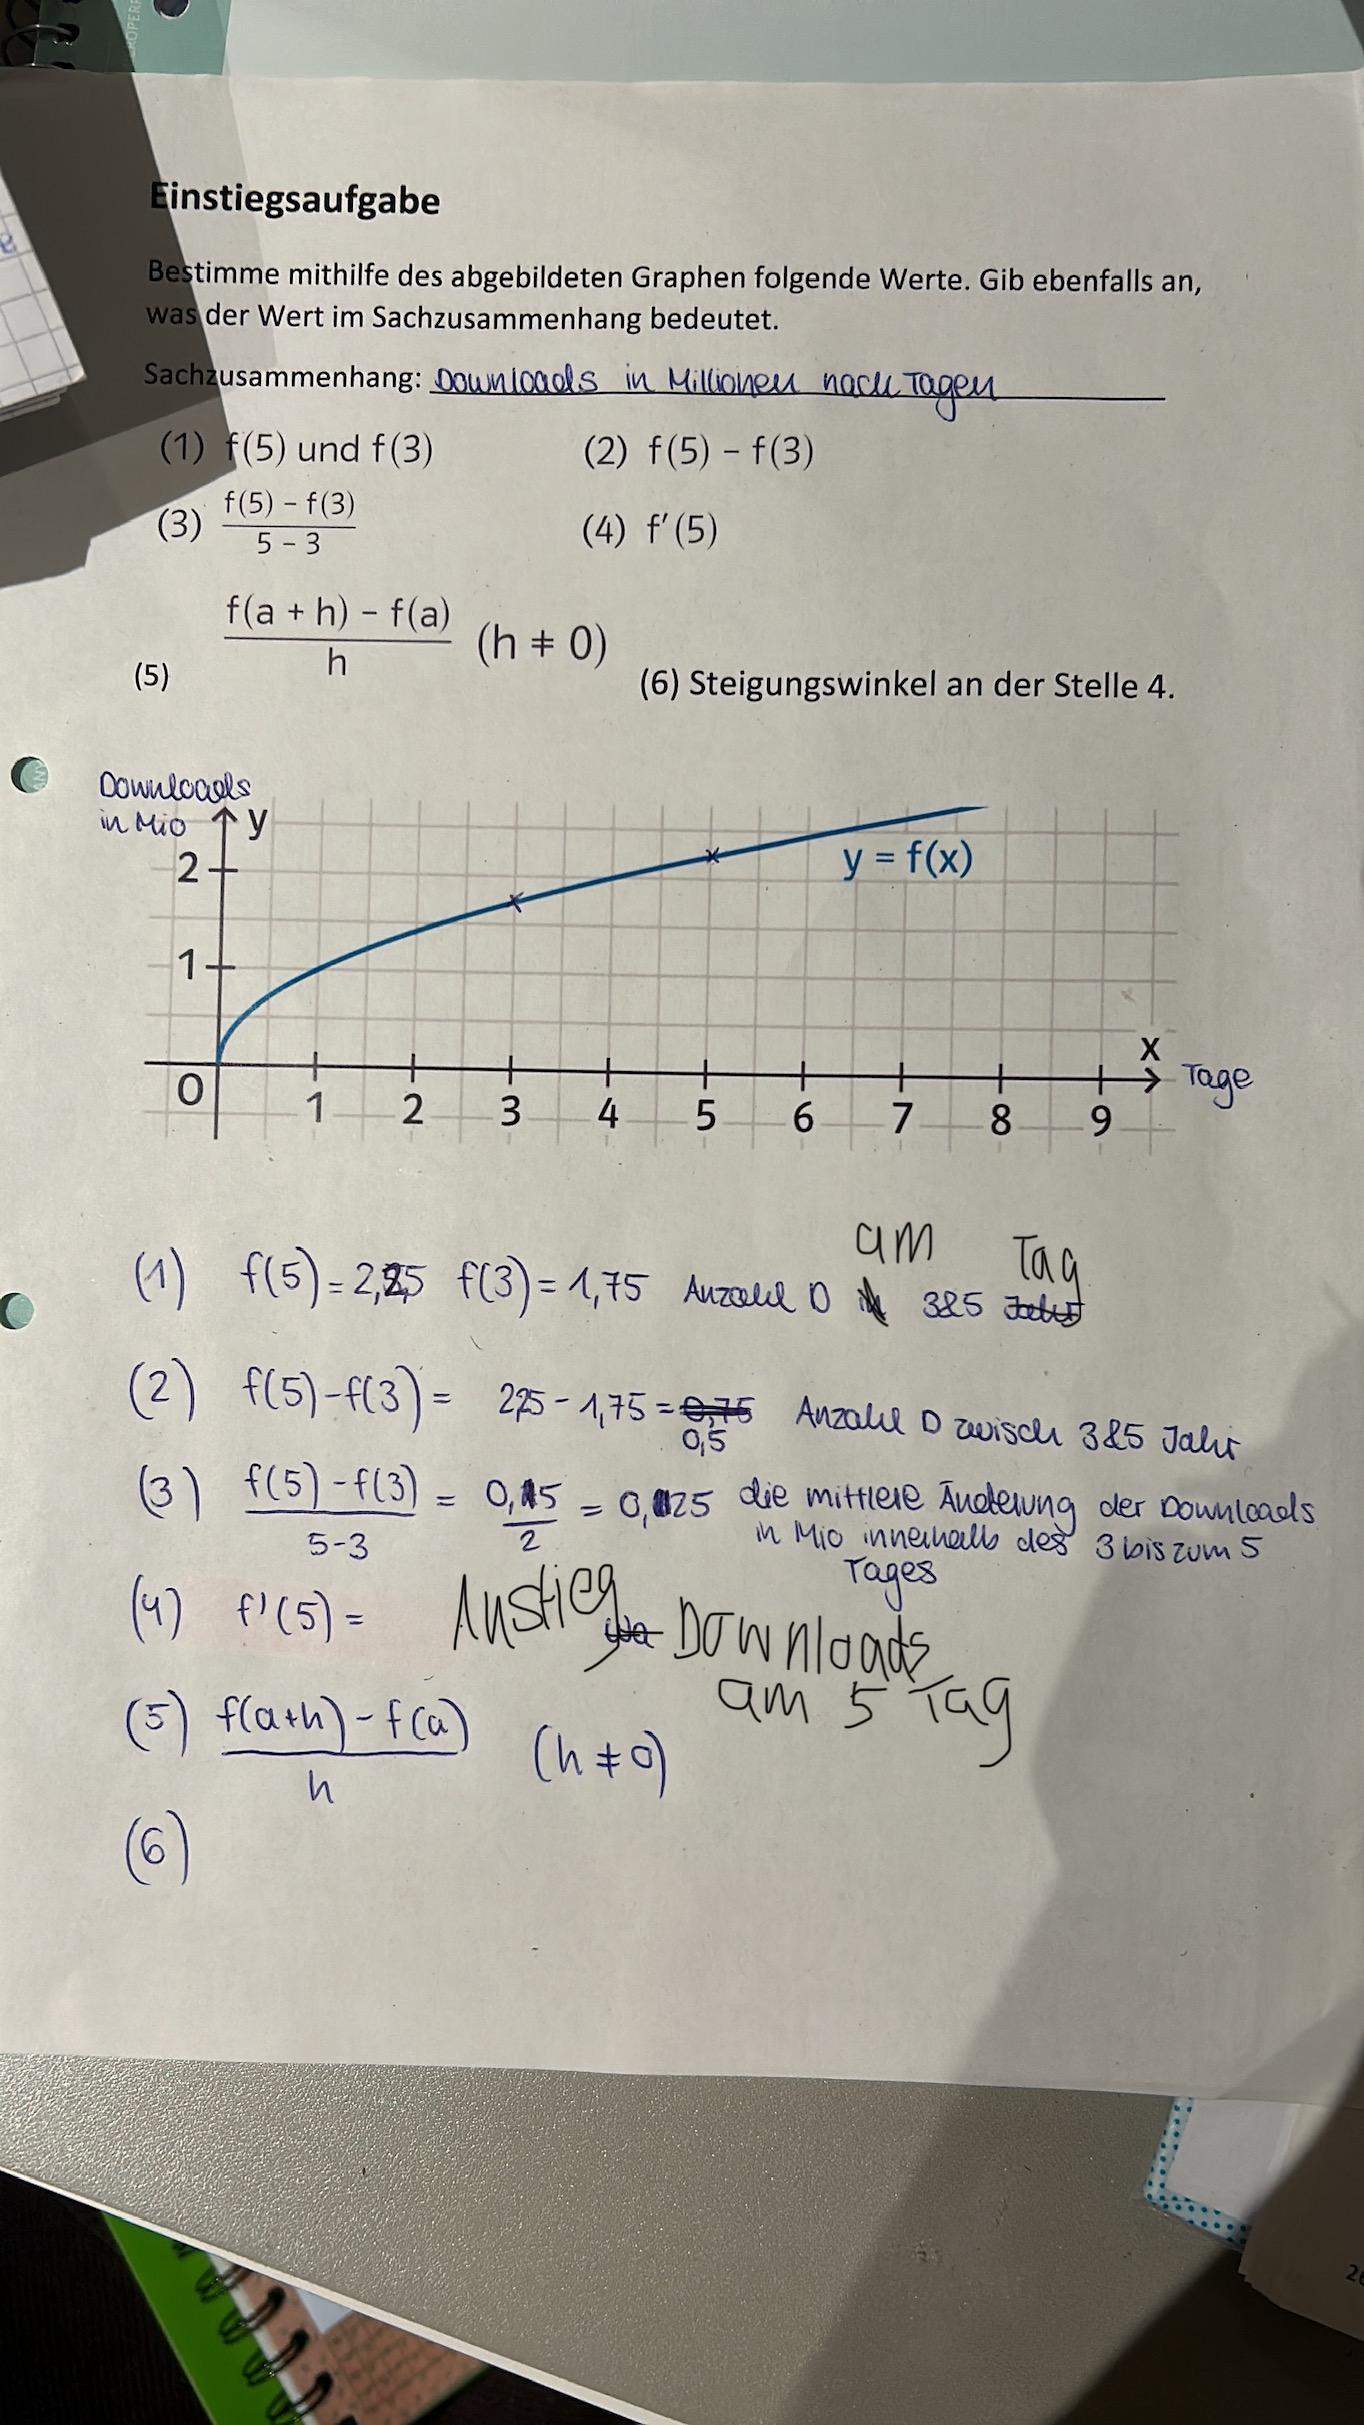 Einstiegsaufgabe
Bestimme mithilfe des abgebildeten Graphen folgende Werte. Gib ebenfalls an,
was der Wert im Sachzusammenhang bedeutet.
Sachzusammenhang: Downloads in Millionen nach Tagen
(1) f(5) und f(3) (2) f(5) – f(3)
(3) f(5) – f(3) / 5 – 3 (4) f'(5)
(5) f(a + h) – f(a) / h (h ≠ 0) (6) Steigungswinkel an der Stelle 4.
Downloads
in Mio y
2
y = f(x)
1
x
Tage
0 1 2 3 4 5 6 7 8 9
am Tag
(1) f(5) = 2,25 f(3) = 1,75 Anzahl D 3&5 Jahr
(2) f(5) – f(3) = 2,25 – 1,75 = 0,75 Anzahl D zwisch 3&5 Jahr
0,5
(3) f(5) – f(3) / 5-3 = 0,5 / 2 = 0,25 die mittlere Änderung der Downloads
in Mio innerhalb des 3 bis zum 5
Tages
(4) f'(5) = Anstieg Downloads
am 5 Tag
(5) f(a+h) – f(a) / h (h ≠ 0)
(6)